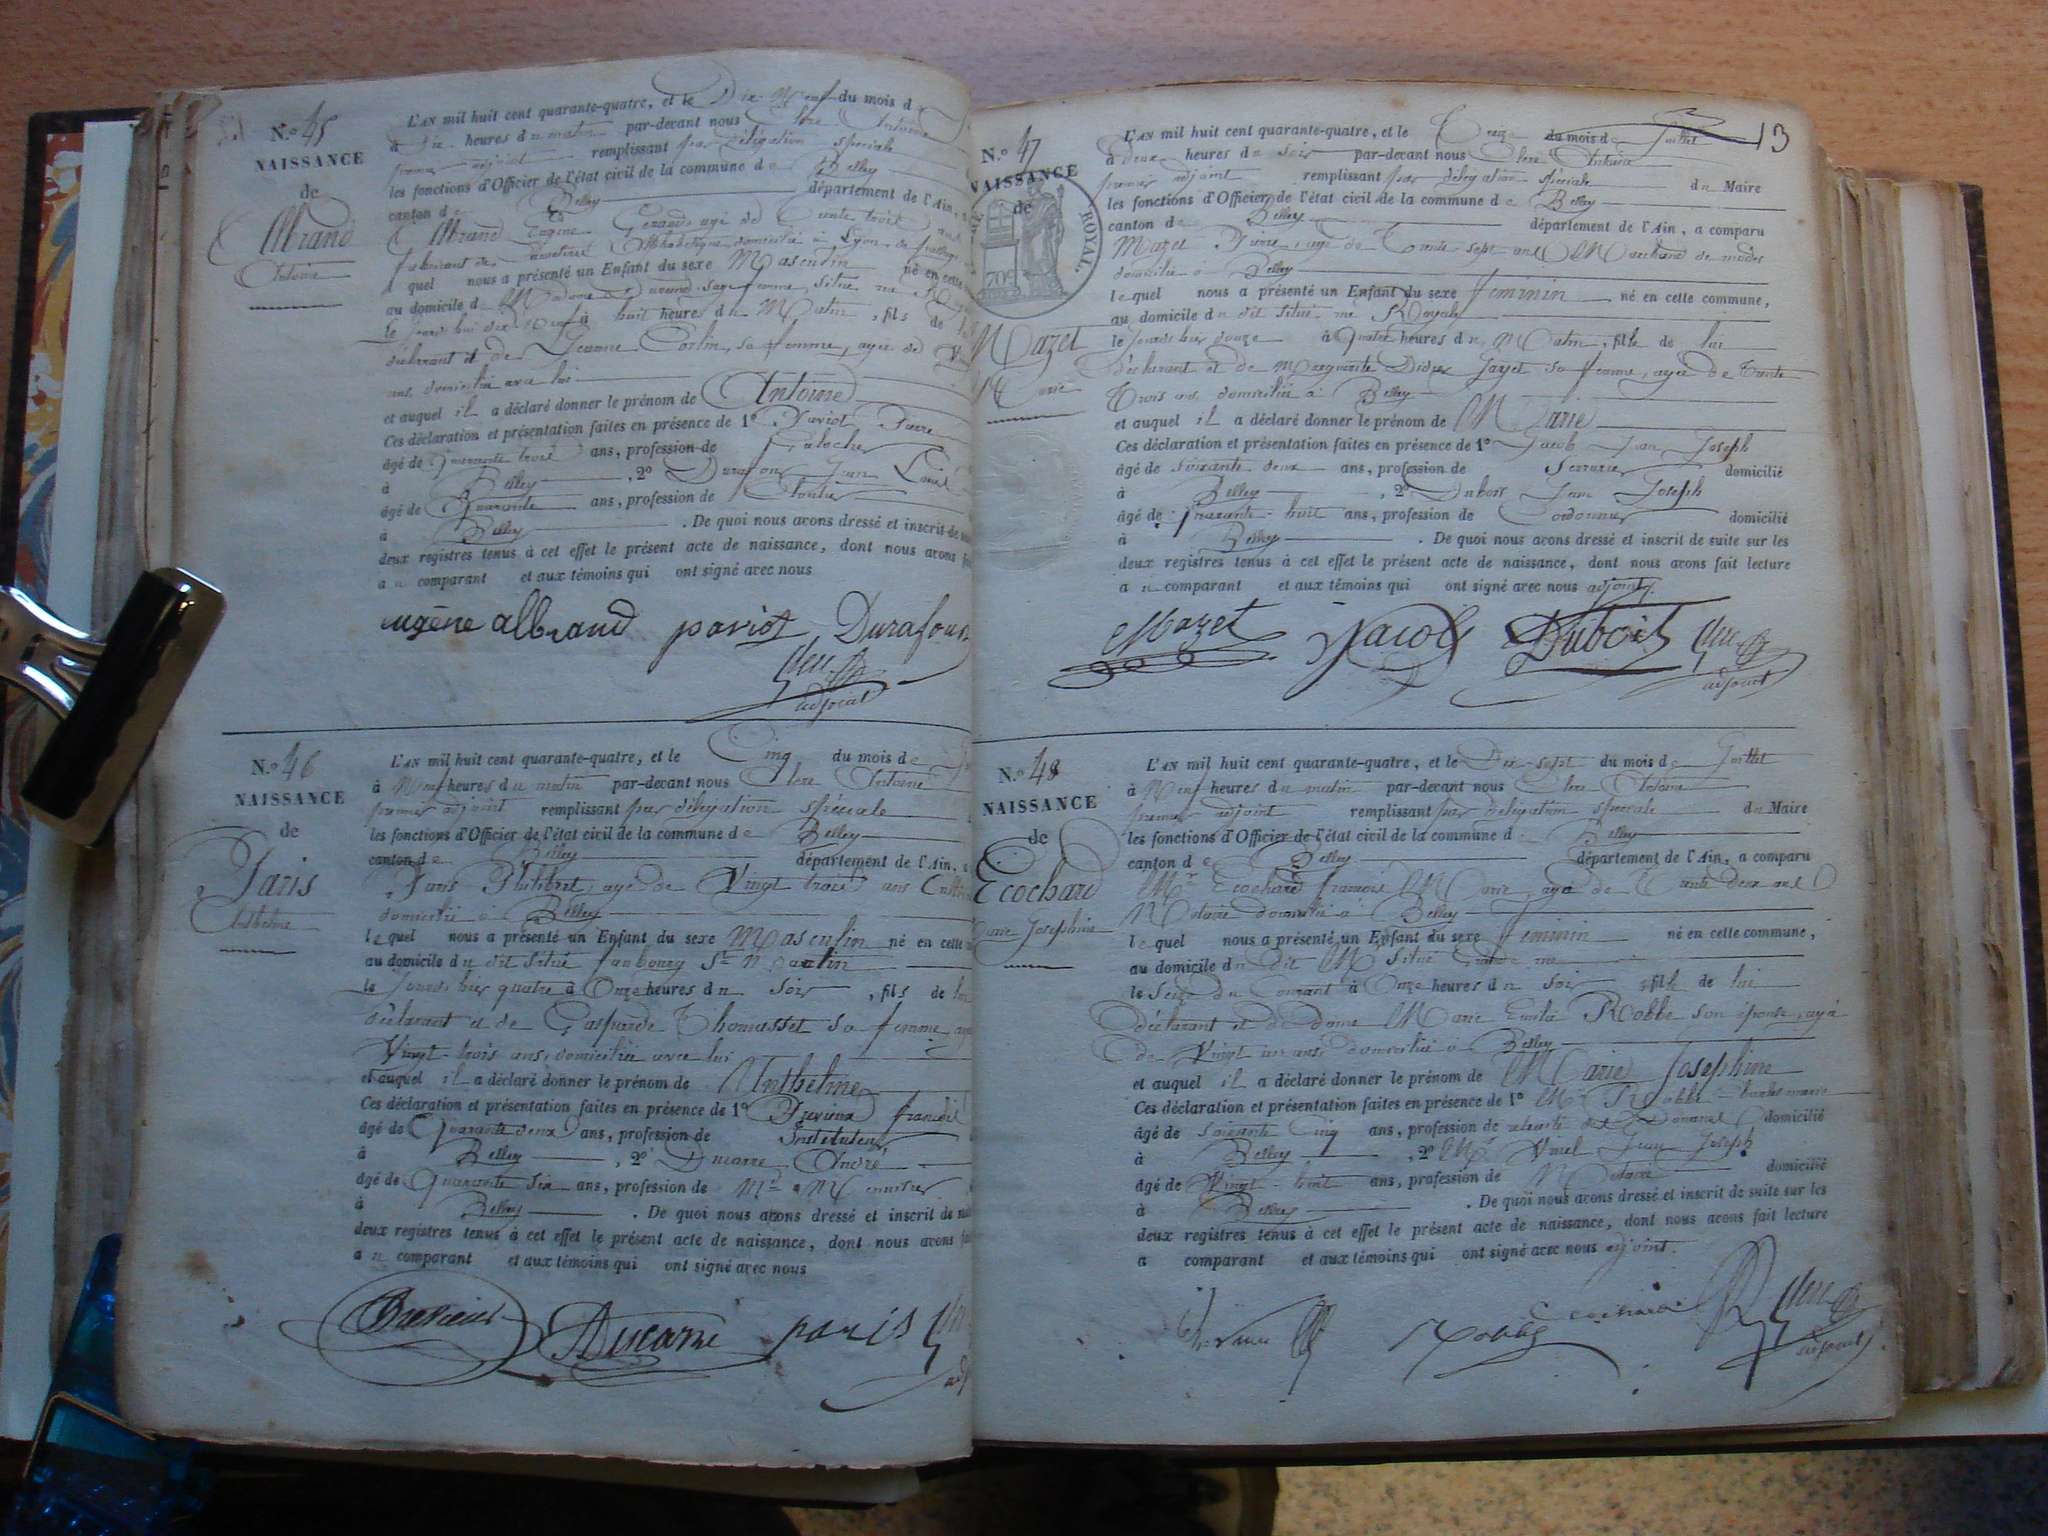 N.º 45
NAISSANCE
de
Albrand
Antoine
L'AN mil huit cent quarante-quatre, et le Dix Neuf du mois d
à dix heures du matin par-devant nous Clerc Antoine
premier adjoint remplissant par délégation spéciale
les fonctions d'Officier de l'état civil de la commune de Belley
canton d Belley département de l'Ain, a
Albrand Eugène âgé de Trente trois ans
domicilié à Lyon
quel nous a présenté un Enfant du sexe Masculin né en cette
au domicile d Madame Durand sage femme, située rue
le jourd'hui dix neuf à huit heures du Matin, fils de lui
déclarant et de Jeanne sa femme, agée de
ans, domiciliée avec lui
et auquel il a déclaré donner le prénom de Antoine
Ces déclaration et présentation faites en présence de 1º Pariot Pierre
âgé de Quarante trois ans, profession de
à Belley, 2º Durafour Jean Louis
âgé de Quarante ans, profession de
à Belley. De quoi nous avons dressé et inscrit de
deux registres tenus à cet effet le présent acte de naissance, dont nous avons
au comparant et aux témoins qui ont signé avec nous
eugène albrand pariot Durafour
Clerc
adjoint
N.º 46
NAISSANCE
de
Paris
Anthelme
L'AN mil huit cent quarante-quatre, et le Cinq du mois de
à Neuf heures du matin par-devant nous Clerc Antoine
premier adjoint remplissant par délégation spéciale
les fonctions d'Officier de l'état civil de la commune de Belley
canton de Belley département de l'Ain, a
Paris Philibert, agé de Vingt trois ans
domicilié à Belley
lequel nous a présenté un Enfant du sexe Masculin né en cette
au domicile du dit situé faubourg St Martin
le jour d'hier quatre à Onze heures du Soir, fils de lui
déclarant et de Gasparde Thomasset sa femme, agée
Vingt-trois ans, domiciliée avec lui
et auquel il a déclaré donner le prénom de Anthelme
Ces déclaration et présentation faites en présence de 1º Prévieux françois
âgé de Quarante deux ans, profession de Instituteur
à Belley, 2º Ducarre André
âgé de Quarante six ans, profession de Md Menuisier
à Belley. De quoi nous avons dressé et inscrit de
deux registres tenus à cet effet le présent acte de naissance, dont nous avons
au comparant et aux témoins qui ont signé avec nous
Prévieux Ducarre paris
13
N.º 47
NAISSANCE
de
ROYAL.
70c
Mazet
Marie
L'AN mil huit cent quarante-quatre, et le Treize du mois de Juillet
à deux heures du soir par-devant nous Clerc Antoine
premier adjoint remplissant par délégation spéciale du Maire
les fonctions d'Officier de l'état civil de la commune de Belley
canton de Belley département de l'Ain, a comparu
Mazet Pierre, agé de Trente sept ans Marchand de modes
domicilié à Belley
lequel nous a présenté un Enfant du sexe féminin né en cette commune,
au domicile du dit situé rue Royale
le jour d'hier douze à Quatre heures du Matin, fille de lui
déclarant et de Marguerite Didier Jayet sa femme, agée de trente
Trois ans domiciliée à Belley
et auquel il a déclaré donner le prénom de Marie
Ces déclaration et présentation faites en présence de 1º Jacob Jean Joseph
âgé de soixante deux ans, profession de Serrurier domicilié
à Belley, 2º Dubois Jean Joseph
âgé de quarante-huit ans, profession de Cordonnier domicilié
à Belley. De quoi nous avons dressé et inscrit de suite sur les
deux registres tenus à cet effet le présent acte de naissance, dont nous avons fait lecture
au comparant et aux témoins qui ont signé avec nous adjoint.
Mazet Jacob Dubois Clerc
adjoint
N.º 48
NAISSANCE
de
Ecochard
Marie Josephine
L'AN mil huit cent quarante-quatre, et le Dix sept du mois de Juillet
à Neuf heures du matin par-devant nous Clerc Antoine
premier adjoint remplissant par délégation spéciale du Maire
les fonctions d'Officier de l'état civil de la commune d Belley
canton de Belley département de l'Ain, a comparu
Mr Ecochard françois Marie, agé de Trente deux ans
Notaire domicilié à Belley
lequel nous a présenté un Enfant du sexe féminin né en cette commune,
au domicile du dit M situé Grande rue
le Seize du Courant à Onze heures du Soir fille de lui
déclarant et de dame Marie Emilie Robbe son épouse, agée
de Vingt un ans, domiciliée à Belley
et auquel il a déclaré donner le prénom de Marie Josephine
Ces déclaration et présentation faites en présence de 1º Mr Robbe
âgé de Soixante Cinq ans, profession de retraité des Douanes domicilié
à Belley, 2º Mr Jean Joseph
âgé de Vingt-huit ans, profession de Notaire domicilié
à Belley. De quoi nous avons dressé et inscrit de suite sur les
deux registres tenus à cet effet le présent acte de naissance, dont nous avons fait lecture
a comparant et aux témoins qui ont signé avec nous adjoint.
Robbe Ecochard Clerc
adjoint